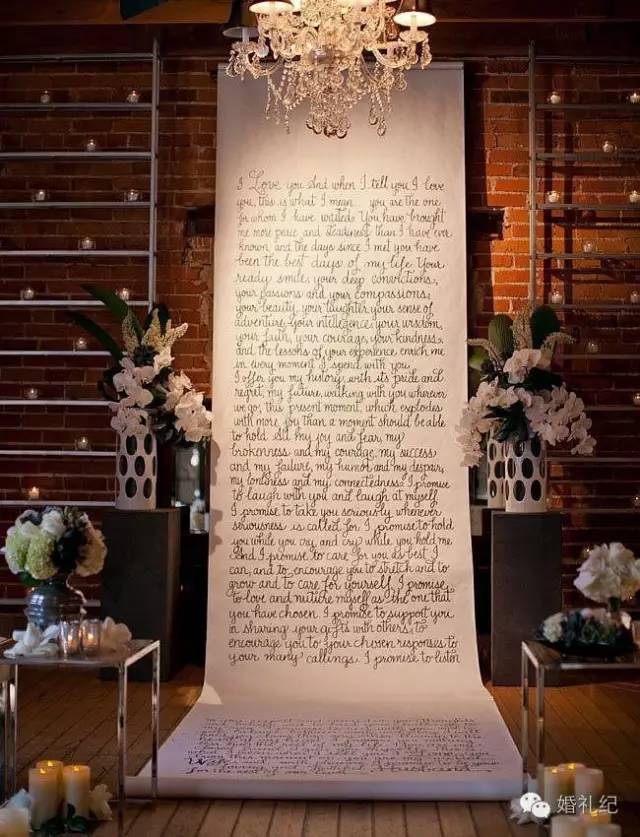 I Love you. And when I tell you I love
you, this is what I mean: you are the one
for whom I have waited. You have brought
me more peace and steadiness than I have ever
known, and the days since I met you have
been the best days of my life. Your
ready smile, your deep convictions,
your passions and your compassions,
your beauty, your laughter, your sense of
adventure, your intelligence, your wisdom,
your faith, your courage, your kindness,
and the lessons of your experience, enrich me
in every moment I spend with you.
I offer you my history, with its pride and
regret, my future, walking with you wherever
we go, this present moment, which explodes
with more you than a moment should be able
to hold. All my joy and fear, my
brokenness and my courage, my success
and my failure, my humor and my despair,
my loneliness and my connectedness. I promise
to laugh with you and laugh at myself.
I promise to take you seriously wherever
seriousness is called for. I promise to hold
you while you cry, and cry while you hold me.
And I promise to care for you as best I
can, and to encourage you to stretch and to
grow and to care for yourself. I promise
to love and nurture myself as the one that
you have chosen. I promise to support you
in sharing your gifts with others, to
encourage you to your chosen responses to
your many callings. I promise to listen
婚礼纪